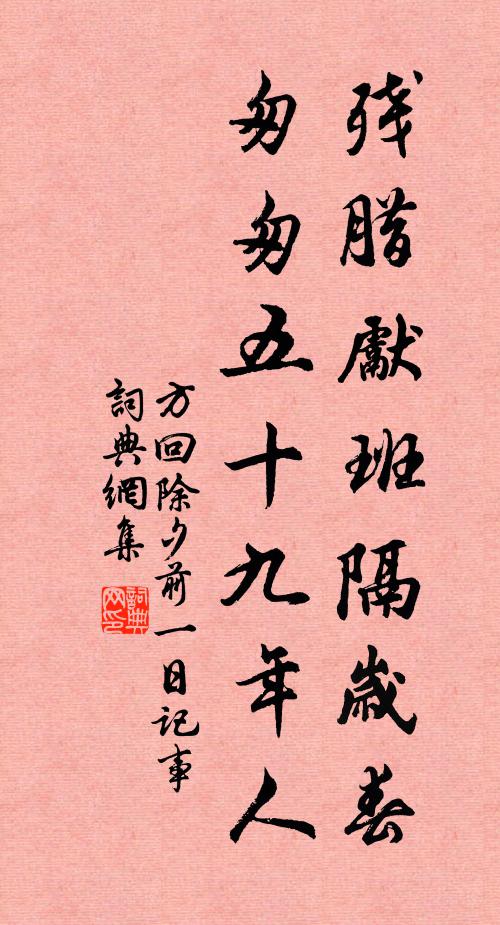 残腊献班隔歲春
匆匆五十九年人
方回除夕前一日記事
詞典網集
詞典網印